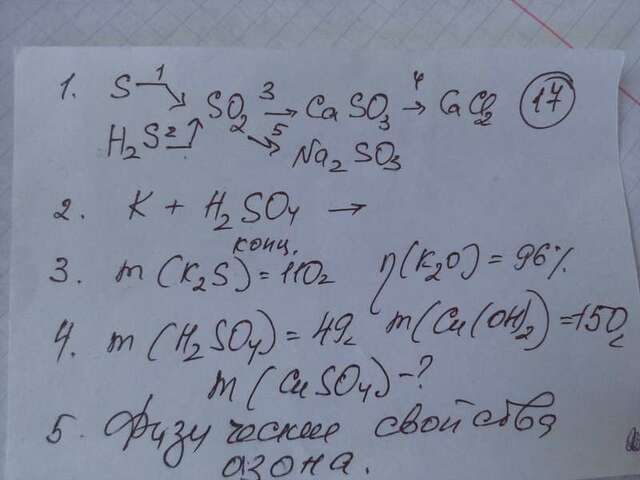 1. S →¹ SO₂ →³ CaSO₃ →⁴ CaCl₂ (17)
H₂S →² →⁵ Na₂SO₃
2. K + H₂SO₄ конц. →
3. m(K₂S) = 110г η(K₂O) = 96%
4. m(H₂SO₄) = 49г m(Cu(OH)₂) = 150г
m(CuSO₄) - ?
5. Физические свойства
азона.